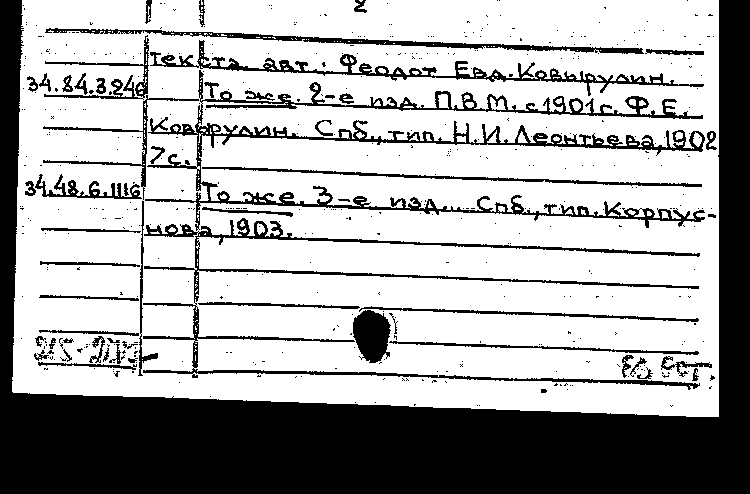 2
текста авт.: Феодот Евд. Ковырулин.
34.84.3.246 То же. 2-е изд. П.В.М. с 1901г. Ф.Е.
Ковырулин. Спб., тип. Н.И. Леонтьева, 1902
7с.
34.48.6.1116 То же. 3-е изд... Спб., тип. Корпус-
нова, 1903.